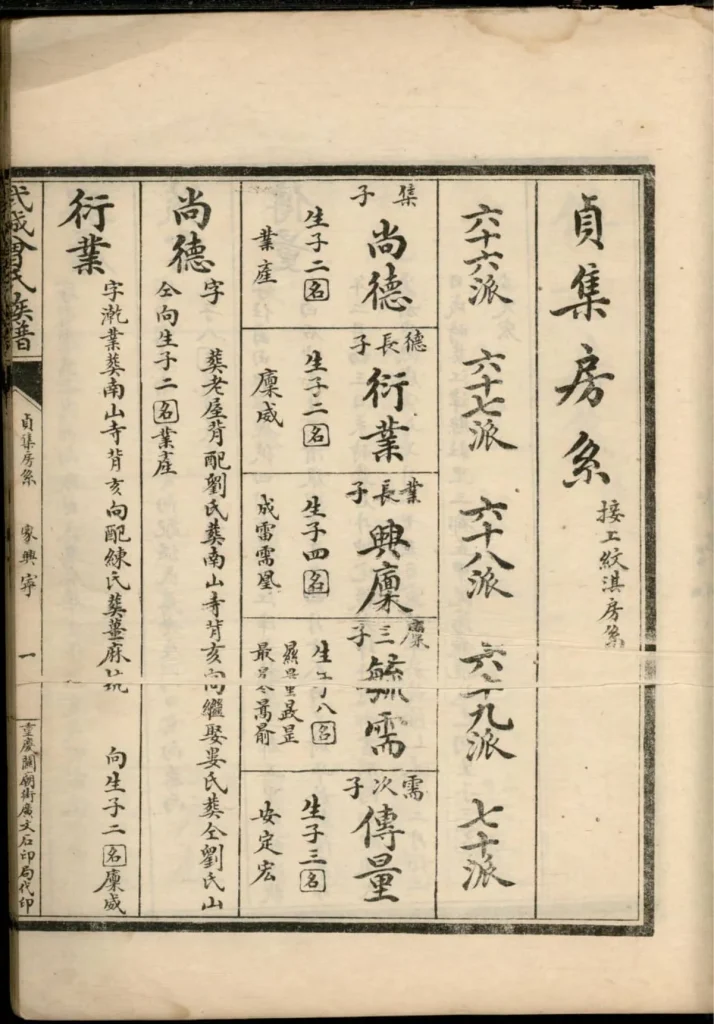 貞集房系 接上紋淇房系
六十六派
六十七派
六十八派
六十九派
七十派
集子 尚德
生子二名
業產
德長子 衍業
生子二名
廩威
業長子 興廩
生子四名
成雷需凰
廩三子 毓需
生子八名
需次子 傳量
生子三名
安定宏
尚德 字 葬老屋背配劉氏葬南山寺背亥向繼娶婁氏葬仝劉氏山
仝向生子二名業產
衍業 字乾業葬南山寺背亥向配練氏葬薑麻坑 向生子二名廩威
武城曾氏族譜
貞集房系 家興寧 一
重慶關廟街廣文石印局代印